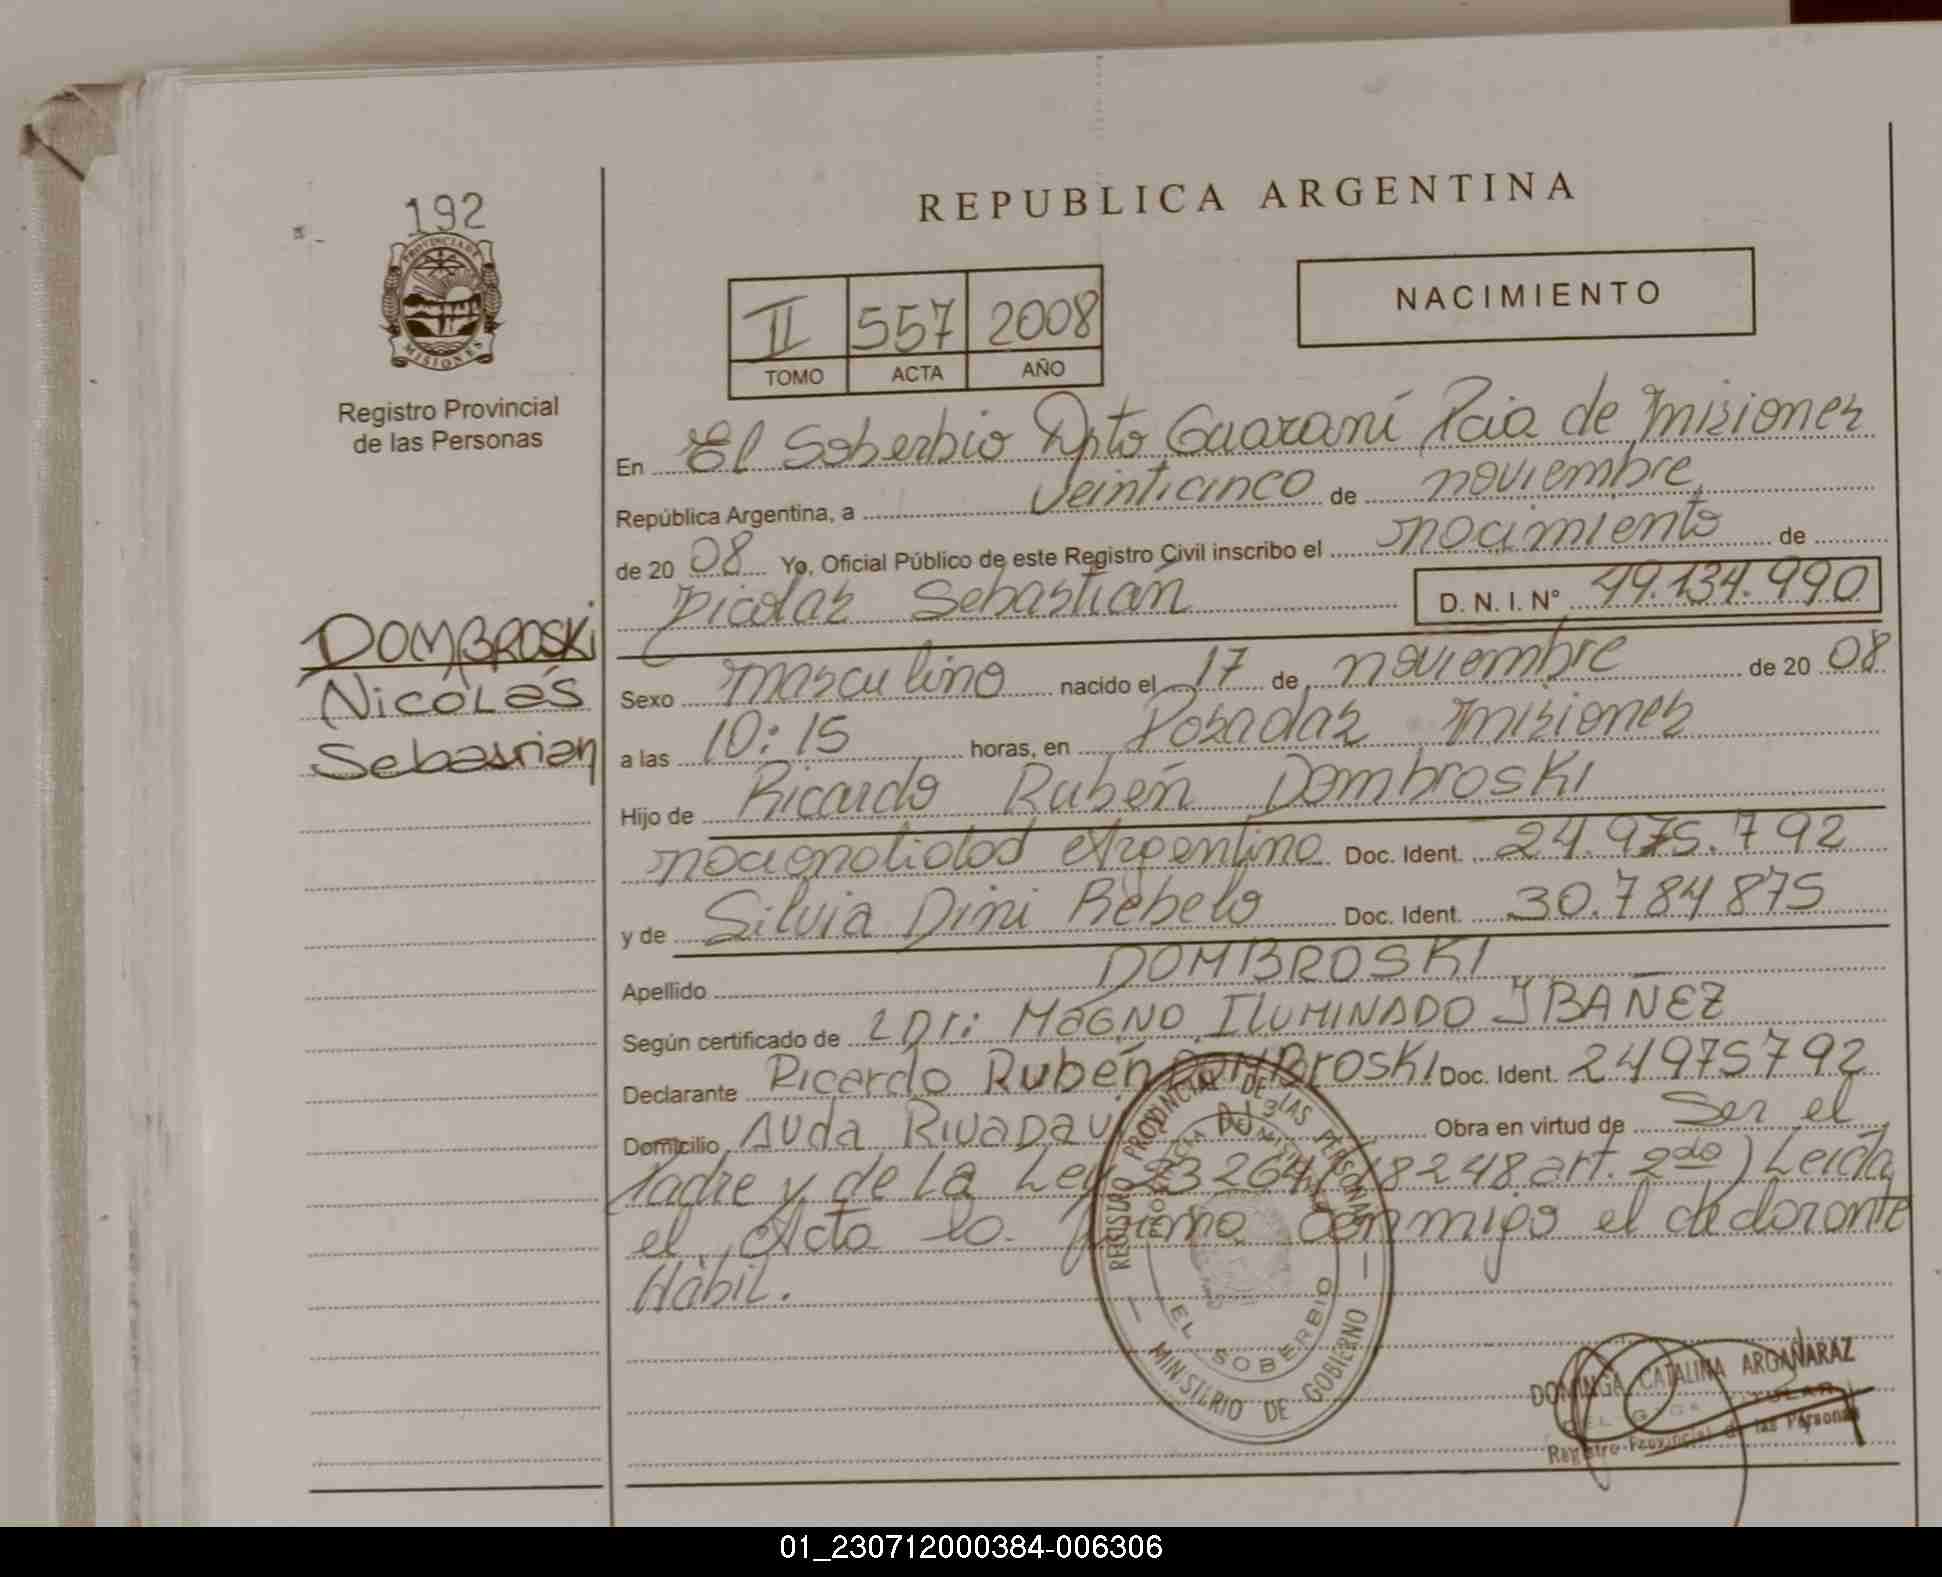 192
PROVINCIA DE
MISIONES
Registro Provincial
de las Personas
DOMBROSKI
Nicolás
Sebastian
REPUBLICA ARGENTINA
II 557 2008
TOMO ACTA AÑO
NACIMIENTO
En El Soberbio Dpto Guaraní Pcia de Misiones
República Argentina, a veinticinco de noviembre
de 2008 Yo, Oficial Público de este Registro Civil inscribo el nacimiento de
Nicolas Sebastián D. N. I. Nº 49.134.990
Sexo masculino nacido el 17 de noviembre de 2008
a las 10:15 horas, en Posadas Misiones
Hijo de Ricardo Rubén Dombroski
nacionalidad Argentino Doc. Ident. 24.975.792
y de Silvia Dini Rebelo Doc. Ident. 30.784875
Apellido DOMBROSKI
Según certificado de Dr: MAGNO ILUMINADO IBAÑEZ
Declarante Ricardo Rubén DOMBROSKI Doc. Ident. 24975792
Domicilio AVda RIVADAV Obra en virtud de Ser el
Padre y de La Ley 23264(18248 art. 2do) Leida
el Acta la firma conmigo el declarante
Hábil.
REGISTRO PROVINCIAL DE LAS PERSONAS
EL SOBERBIO
MINISTERIO DE GOBIERNO
DOMINGA CATALINA ARGAÑARAZ
Registro Provincial de las Personas
01_230712000384-006306